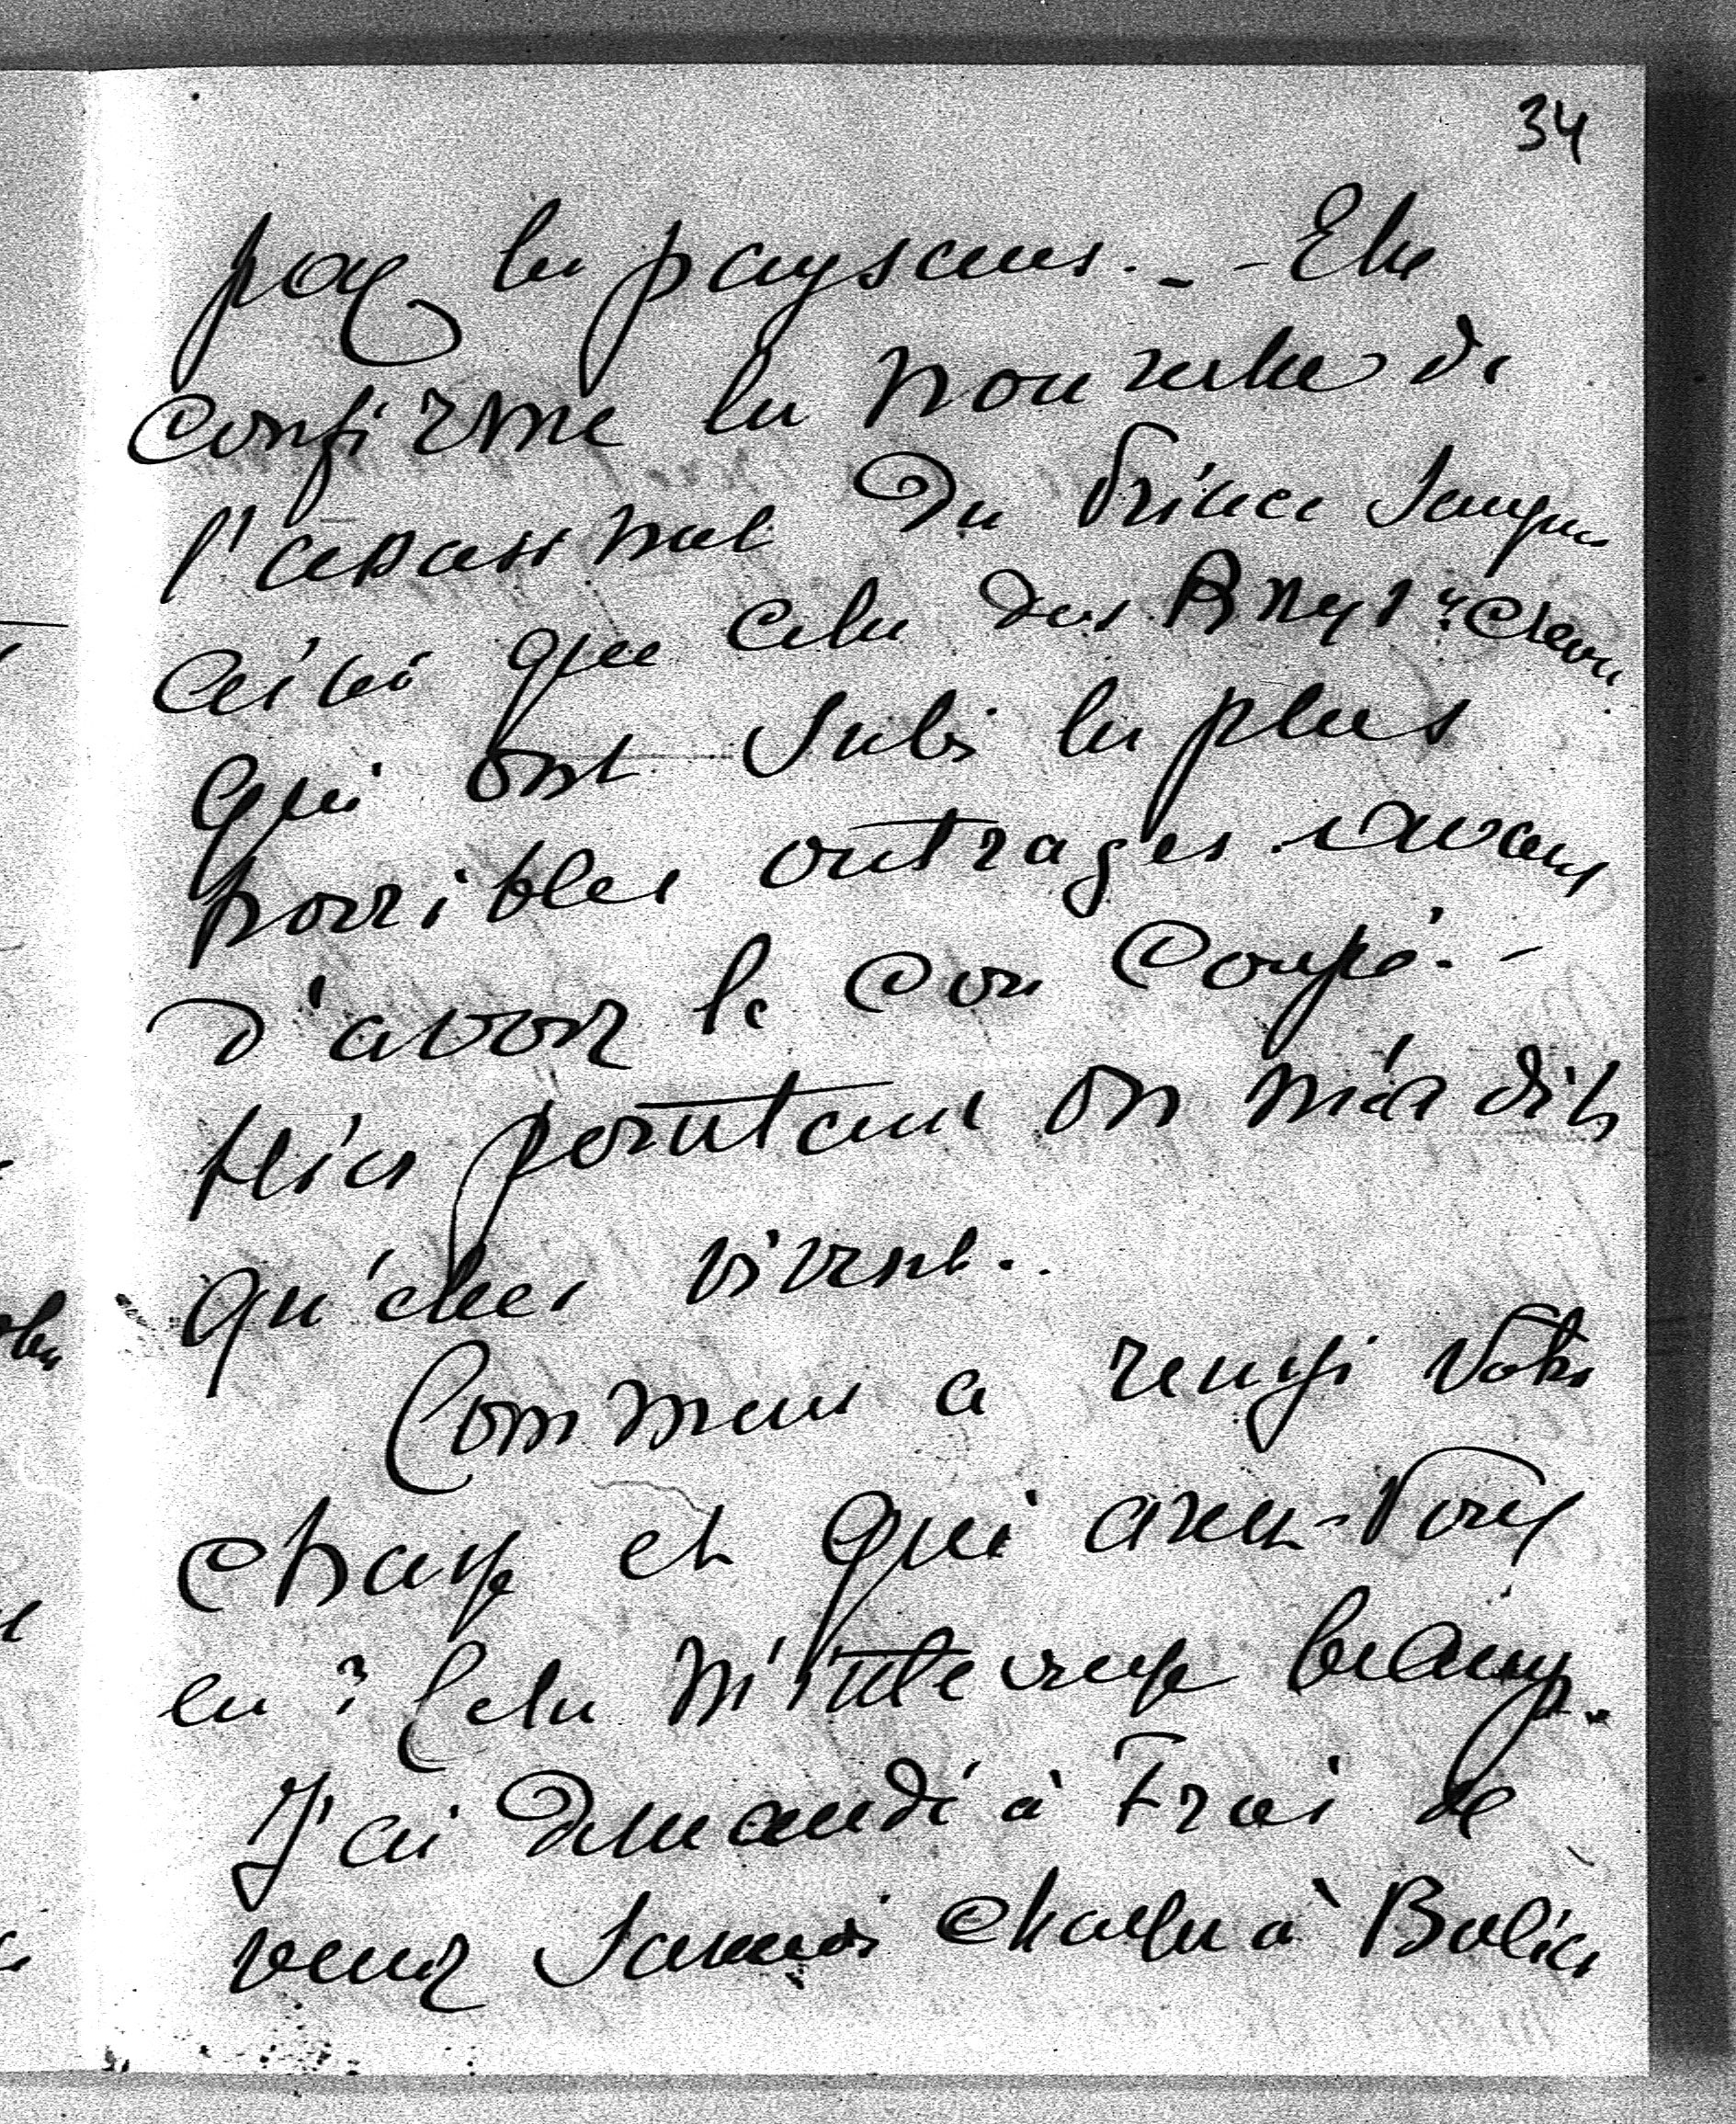 34
par les paysans. - - Elle
confirme la nouvelle de
l'assassinat du Prince Sangus
ainsi que celui des
qui ont subi les plus
horribles outrages avant
d'avoir le cou coupé. -
pourtant on m'a dit
qu'elles vivent..
Comment a réussi votre
chasse et qui avez-vous
eu ? Cela m'intéresse beaucoup.
J'ai demandé à Frai de
venir Samedi chasser à Balice